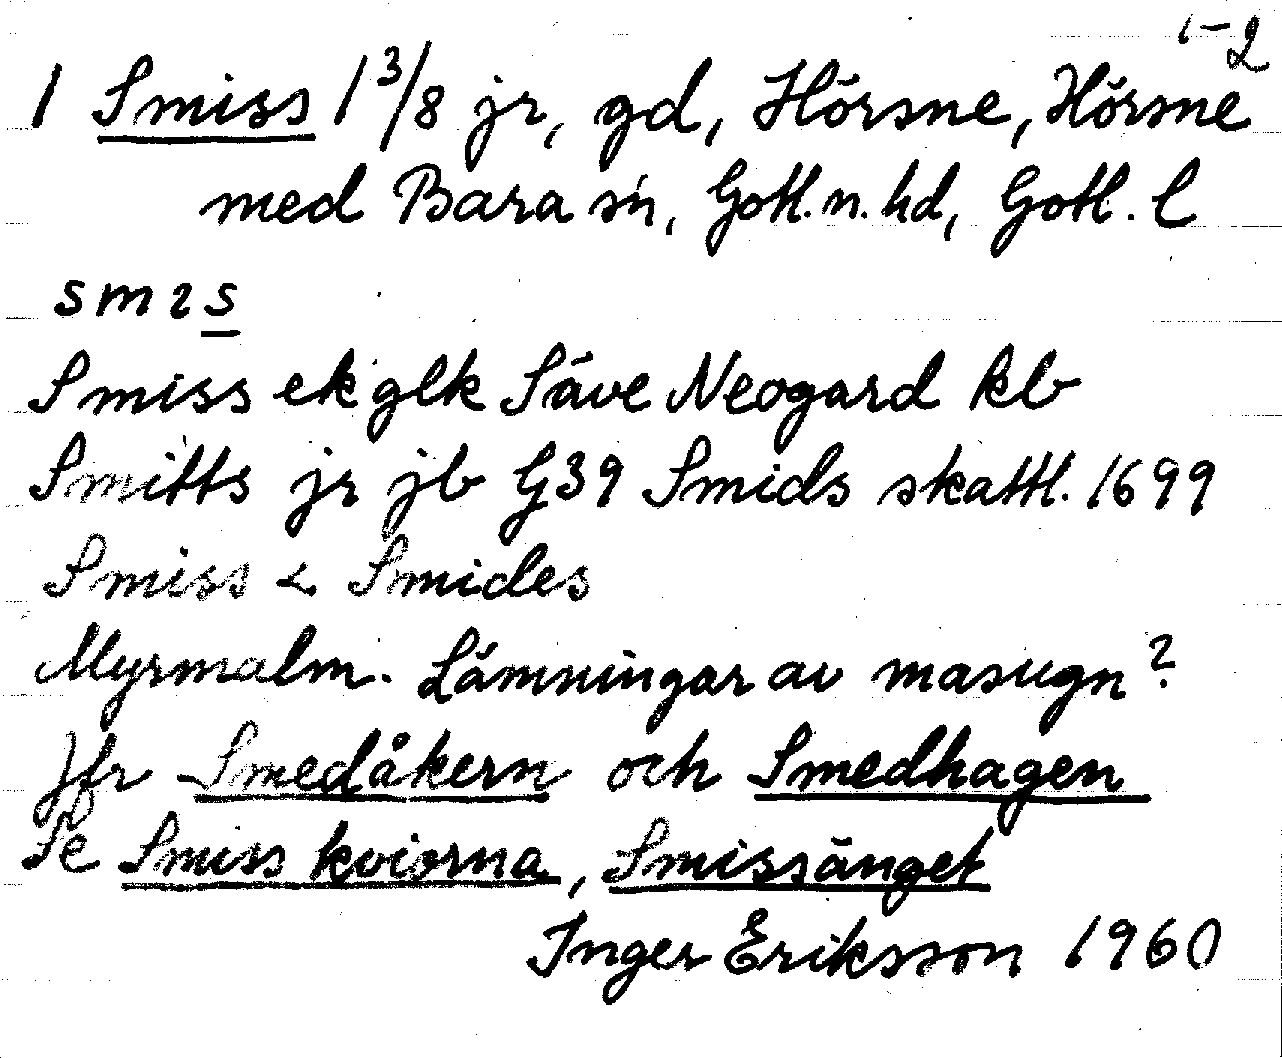 1-2
1 Smiss 1 3/8 jr, gd, Hörsne, Hörsne
med Bara sn, Gotl. n. hd, Gotl. l
smɪs
Smiss ek glk Säve Neogard kb
Smitts jr jb G39 Smids skattl. 1699
Smiss < Smides
Myrmalm. Lämningar av masugn?
Jfr Smedåkern och Smedhagen
Se Smiss kviorna, Smissänget
Inger Eriksson 1960